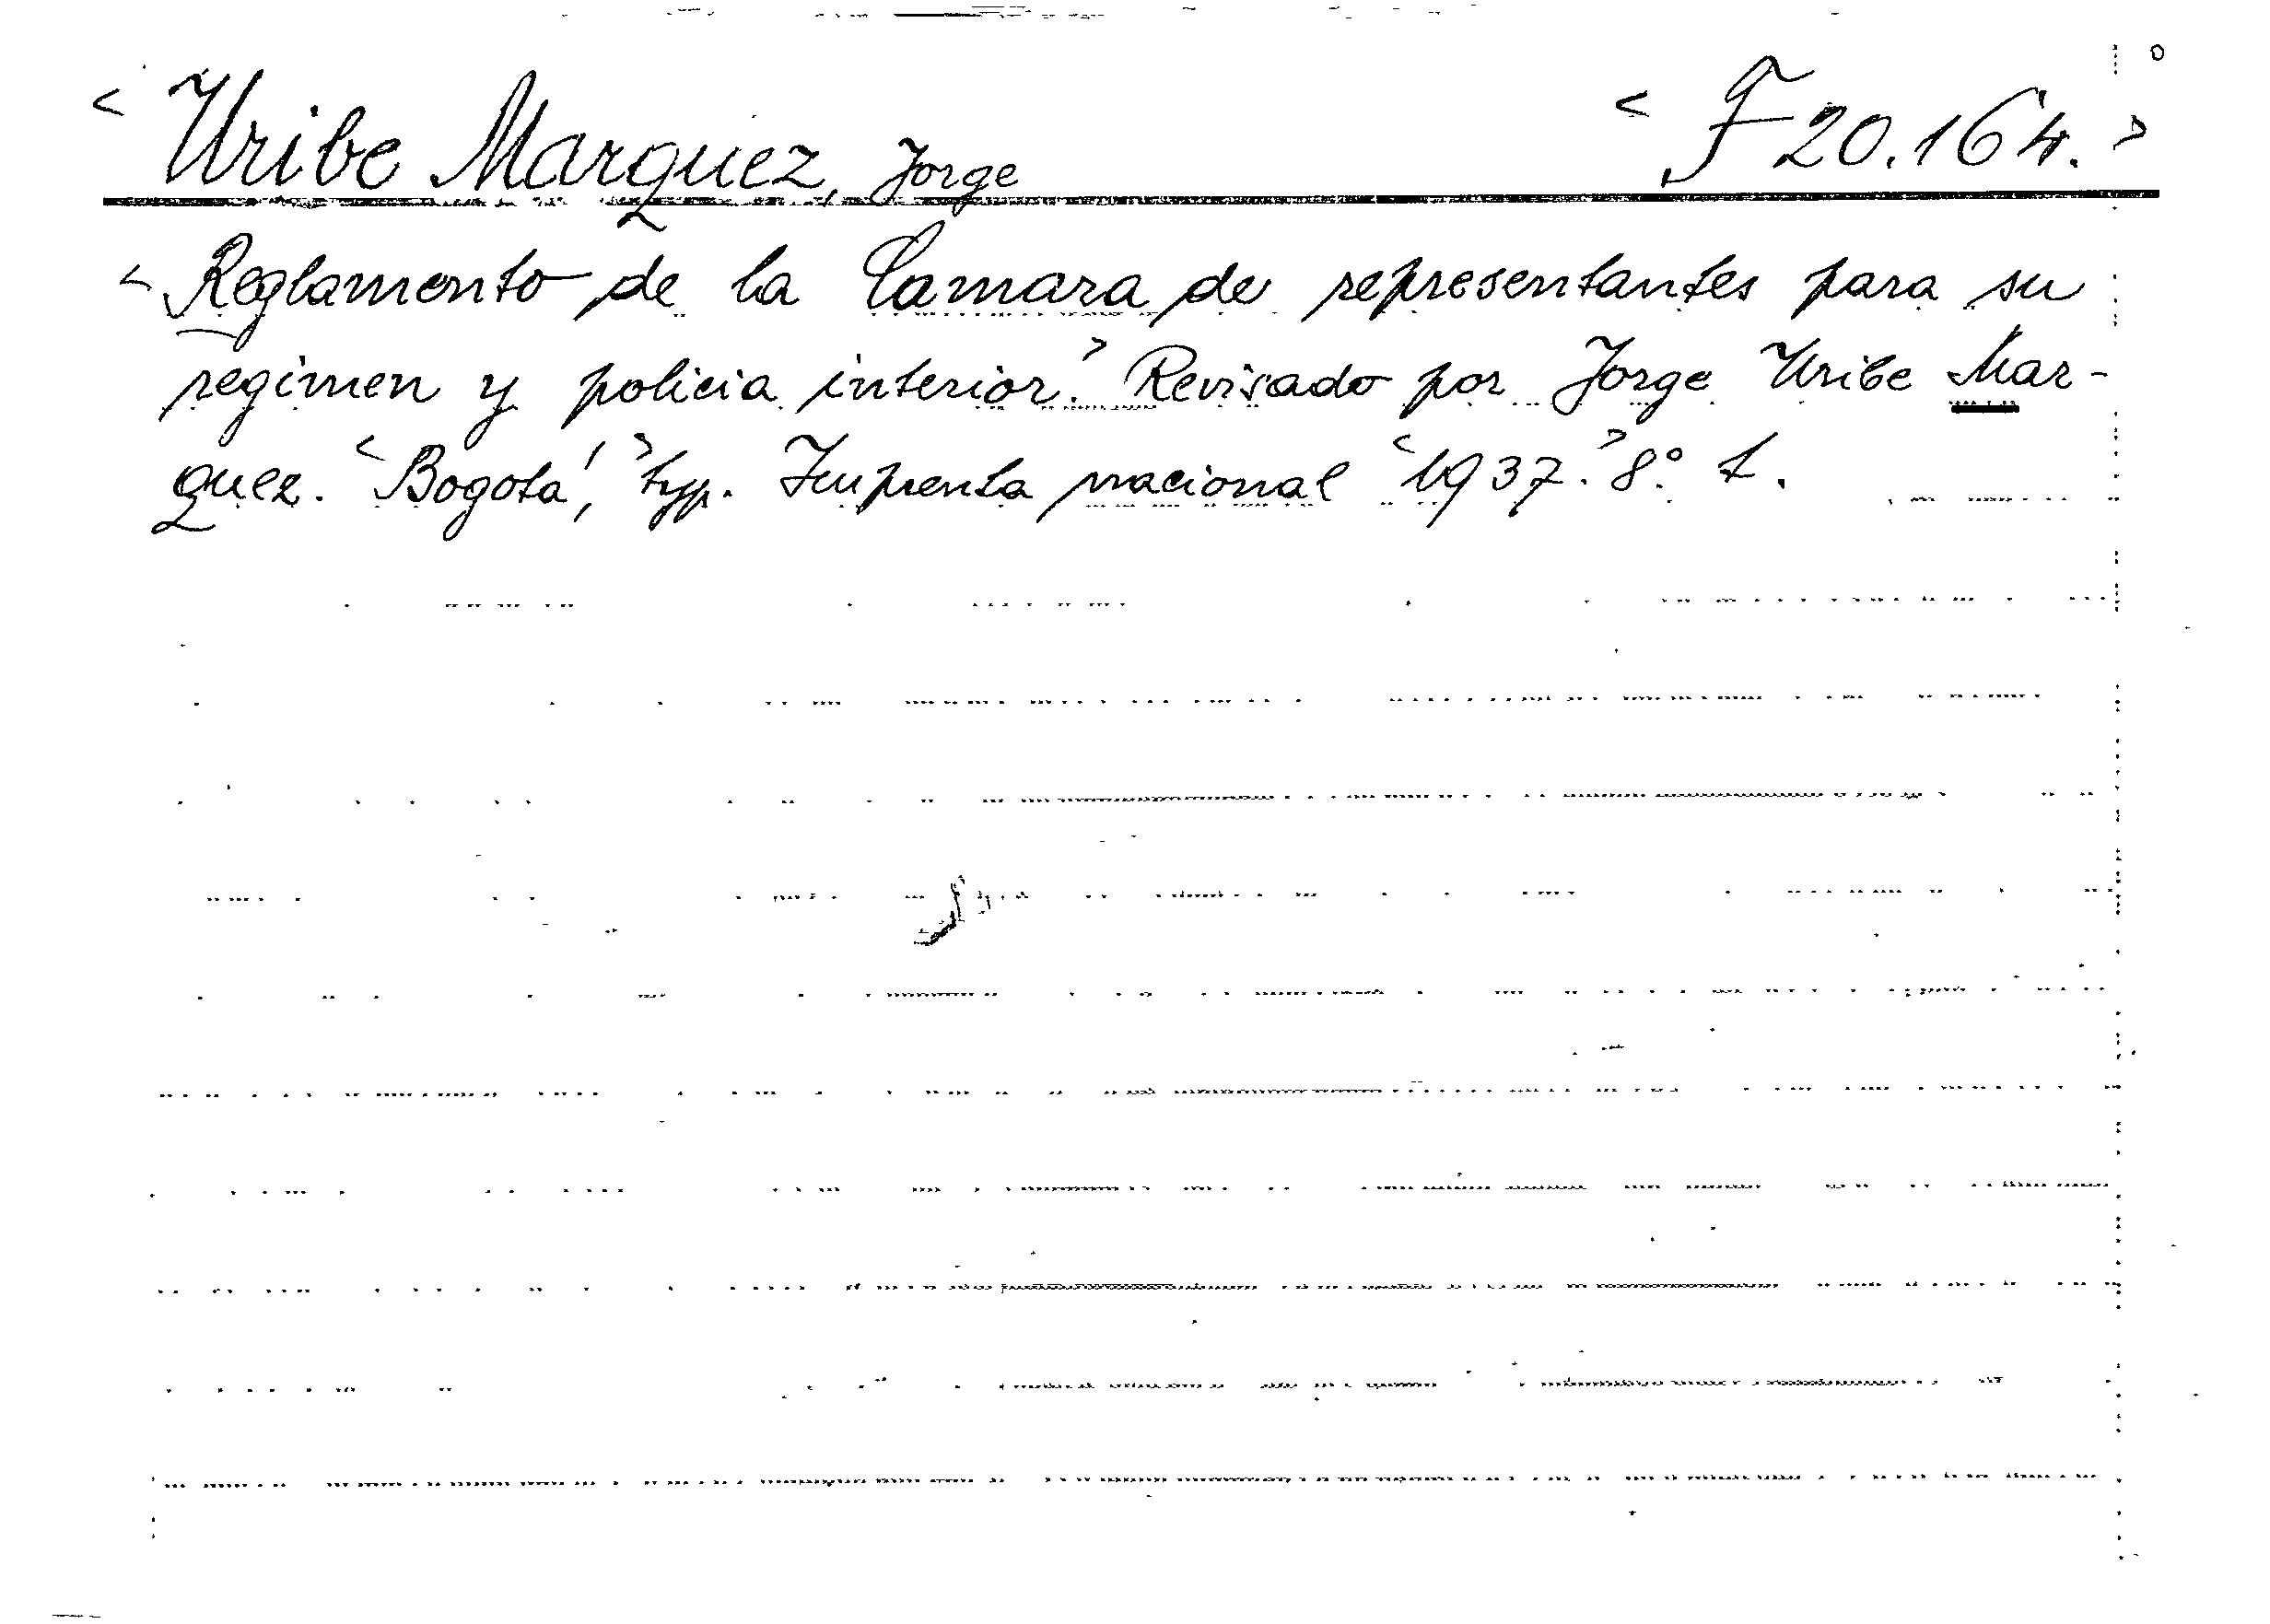 < Uribe Marquez, Jorge < F 20.164. >
< Reglamento de la Camara de representantes para su
regimen y policia interior.> Revisado por Jorge Uribe Mar-
quez. <Bogotá,> typ. Imprenta nacional <1937.> 8.º L.